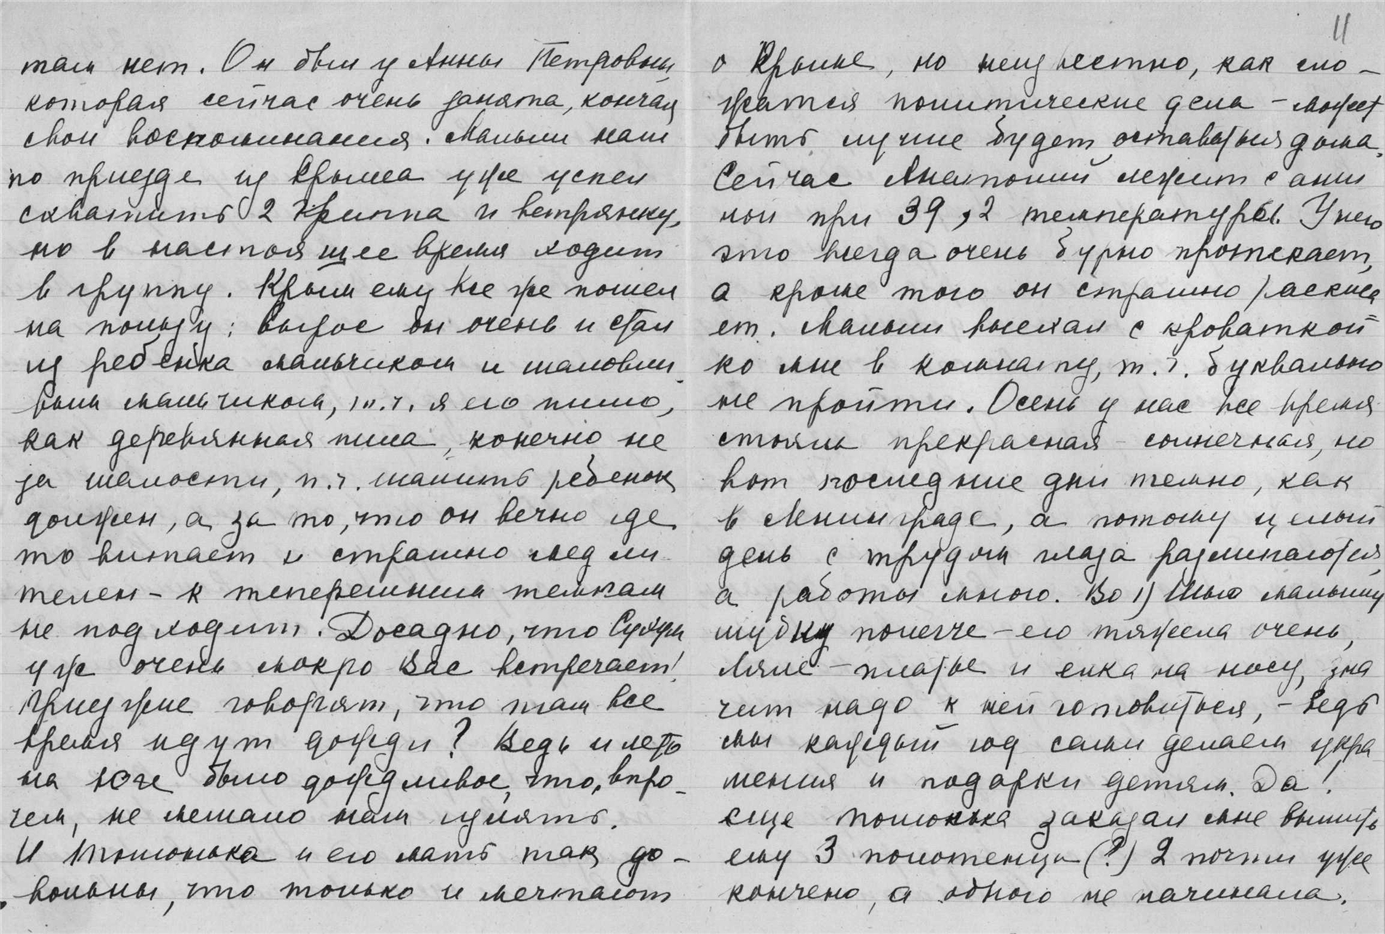 там нет. Он был у Анны Петровны,
которая сейчас очень занята, кончая
свои воспоминания. Малыш наш
по приезде из Крыма уже успел
схватить 2 гриппа и ветрянку,
но в настоящее время ходит
в группу. Крым ему все же пошел
на пользу: вырос он очень и стал
из ребенка мальчиком и шаловли-
вым мальчиком, т.ч. я его пилю,
как деревянная пила, конечно не
за шалости, п.ч. шалить ребенок
должен, а за то, что он вечно где
то витает и страшно медли-
телен - к теперешним темпам
не подходит. Досадно, что Сухум
уж очень мокро Вас встречает!
Приезжие говорят, что там все
время идут дожди? Ведь и лето
на юге было дождливое, что, впро-
чем, не мешало нам гулять.
И Толюнька и его мать так до-
вольны, что только и мечтают
11
о Крыме, но неизвестно, как сло-
жатся политические дела - может
быть лучше будет оставаться дома.
Сейчас Анатолий лежит с анги
ной при 39,2 температуры. У него
это всегда очень бурно протекает,
а кроме того он страшно раскиса
ет. Малыш въехал с кроваткой
ко мне в комнату, т.ч. буквально
не пройти. Осень у нас все время
стояла прекрасная - солнечная, но
вот последние дни темно, как
в Ленинграде, а потому целый
день с трудом глаза разлипаются,
а работы много. Во 1) Шью малышу
шубку полегче - его тяжела очень,
Ляле - платье и елка на носу, зна
чит надо к ней готовиться, - ведь
мы каждый год сами делаем укра
шения и подарки детям. Да!
еще Толюнька заказал мне вышить
ему 3 полотенца (?) 2 почти уже
кончено, а одного не начинала.